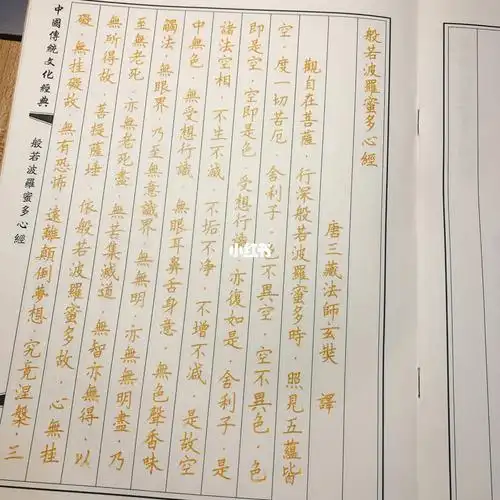 般若波羅蜜多心經
唐三藏法師玄奘 譯
觀自在菩薩．行深般若波羅蜜多時．照見五蘊皆
空．度一切苦厄．舍利子．不異空．空不異色．色
即是空．空即是色．受想行．亦復如是．舍利子．是
諸法空相．不生不滅．不垢不淨．不增不減．是故空
中無色．無受想行識．無眼耳鼻舌身意．無色聲香味
觸法．無眼界．乃至無意識界．無無明．亦無無明盡．乃
至無老死．亦無老死盡．無苦集滅道．無智亦無得．以
無所得故．菩提薩埵．依般若波羅蜜多故．心無挂
礙．無挂礙故．無有恐怖．遠離顛倒夢想．究竟涅槃．三
中國傳統文化經典
般若波羅蜜多心經
小红书